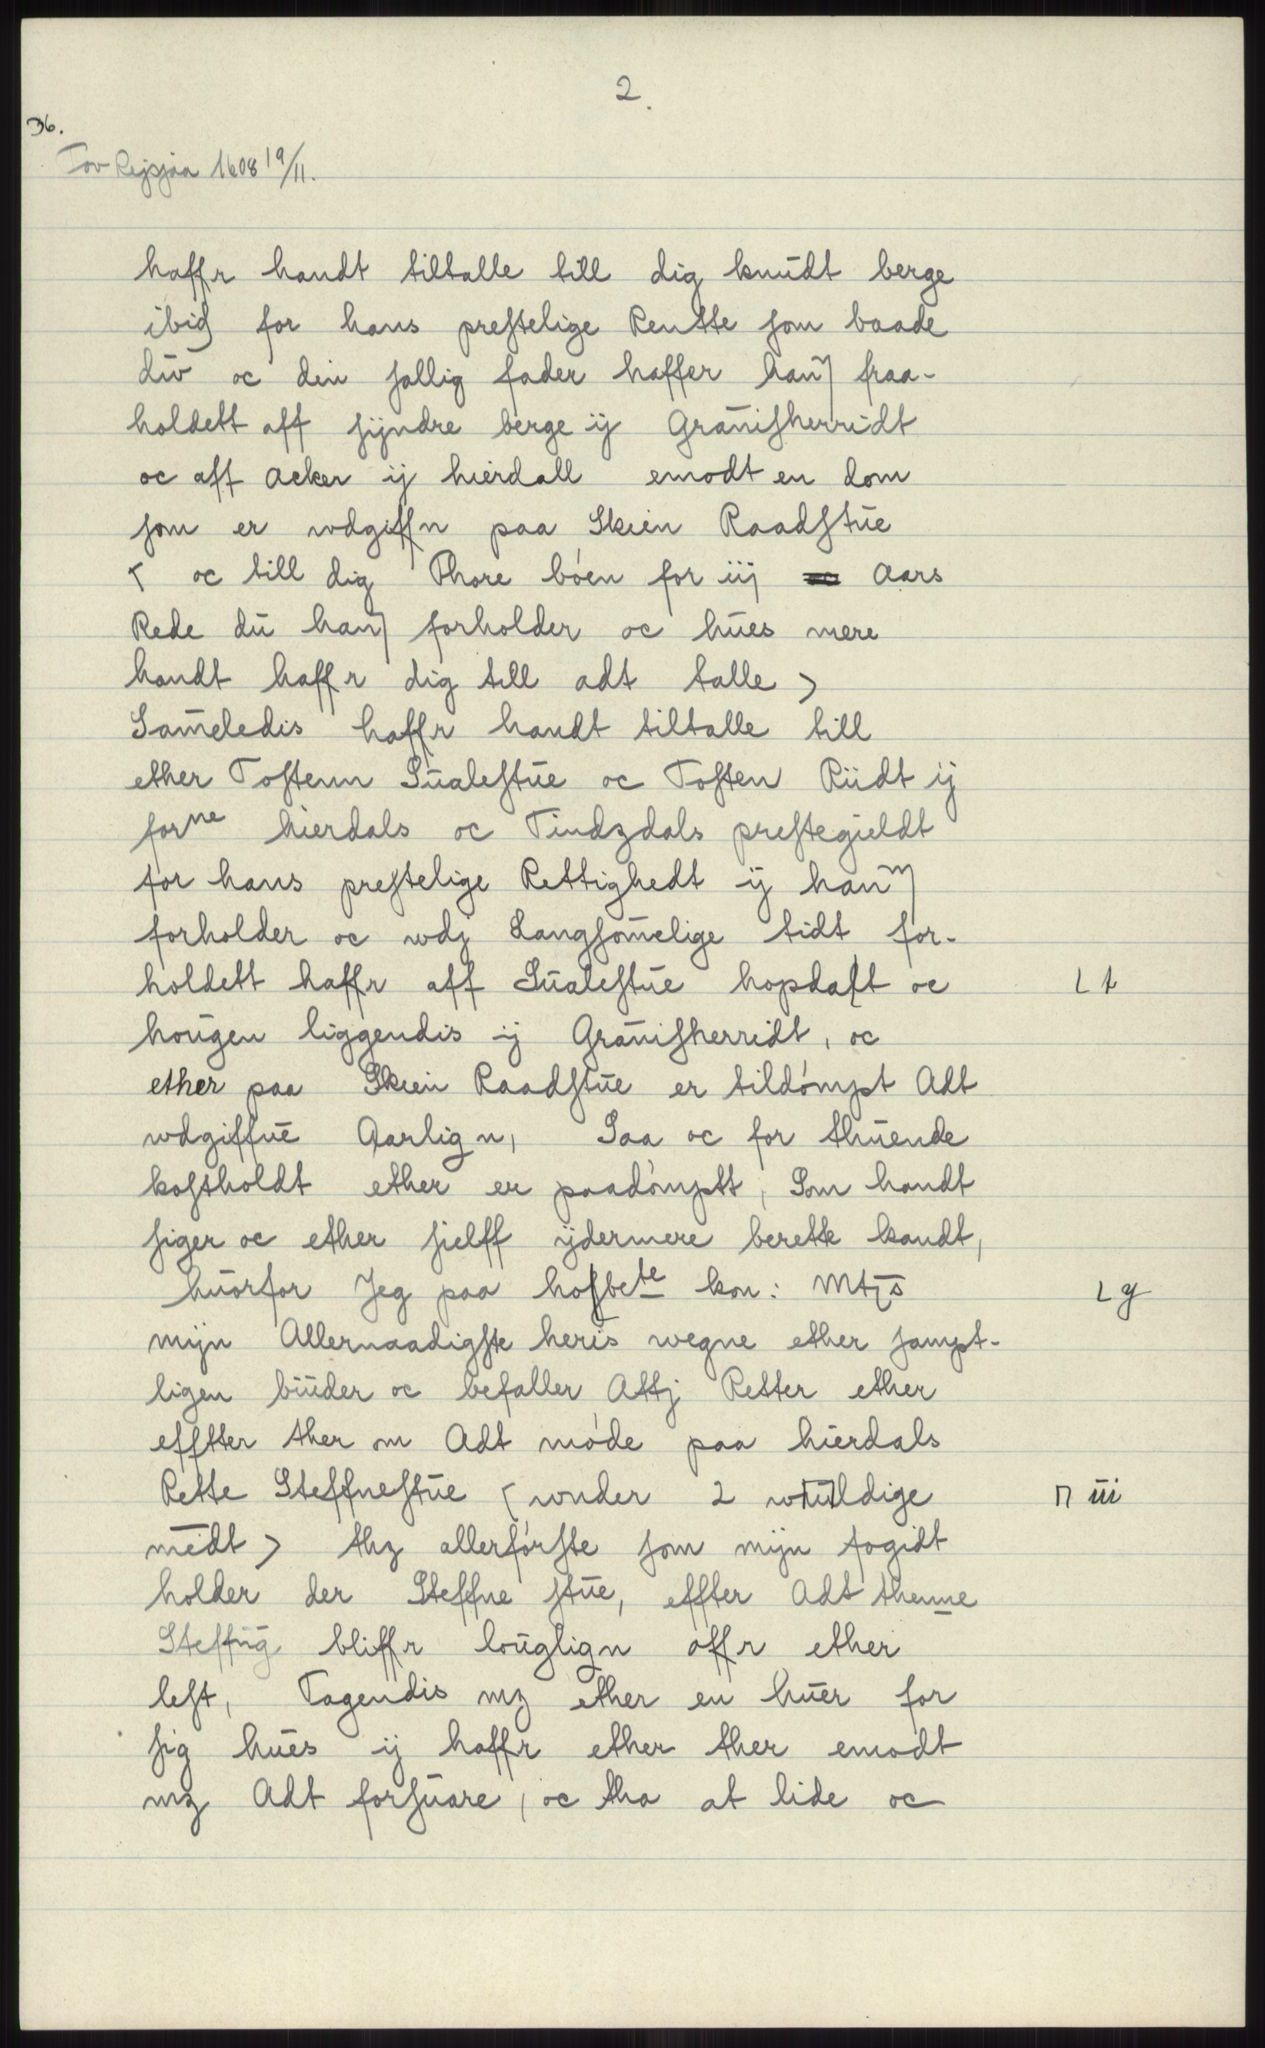 2.
36.
Tov Rejsjaa 1608 19/11.
haffr handt tiltalle till dig knudt berge
ibid for hans prestelige Rentte som baade
du oc din sallig fader haffer hanŋ fraa-
holdett aff syndre berge ij Granisherridt
oc aff acker ij hierdall emodt en dom
som er wdgiffn paa Skien Raadstue
< oc till dig Thore bóen for iij Aars
Rede du hanŋ forholder oc hues mere
handt haffr dig till adt talle >
Sameledis haffr handt tiltalle till
ether Tostenn Sualestue oc Tosten Riidt ij
forne hierdals oc Tindzdals prestegieldt
for hans prestelige Rettighedt ij hanŋ
forholder oc wdj Langsomelige tidt for-
holdett haffr aff Sualestue hopdalt oc
L t
hougen liggendis ij Granisherridt, oc
ether paa Skien Raadstue er tildómpt Adt
wdgiffue Aarlign, Saa oc for thuende
kostholdt ether er paadómptt, Som handt
siger oc ether sielff ydermere berette kandt,
huorfor Jeg paa hosbete kon: Mtjs
L g
mijn Allernaadigste heris wegne ether sampt-
ligen biuder oc befaller Attj Retter ether
effter ther om Adt móde paa hierdals
Rette Steffnestue < wnder 2 wuldige
⊓ iii
medt > thz allerførste som mijn fogidt
holder der Steffne stue, effter Adt thenne
Steffng bliffr louglign offr ether
lest, Tagendis mz ether en huer for
sig hues ij haffr ether ther emodt
mz Adt forsuare, oc tha at lide oc